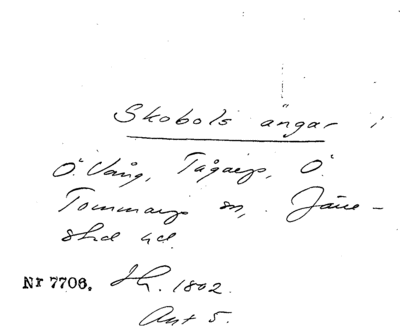 Skobols ängar i
Ö. Vång, Tågarp, Ö.
Tommarps sn, Järre-
stad hd.
Nr 7706. Sk. 1802.
Akt 5.